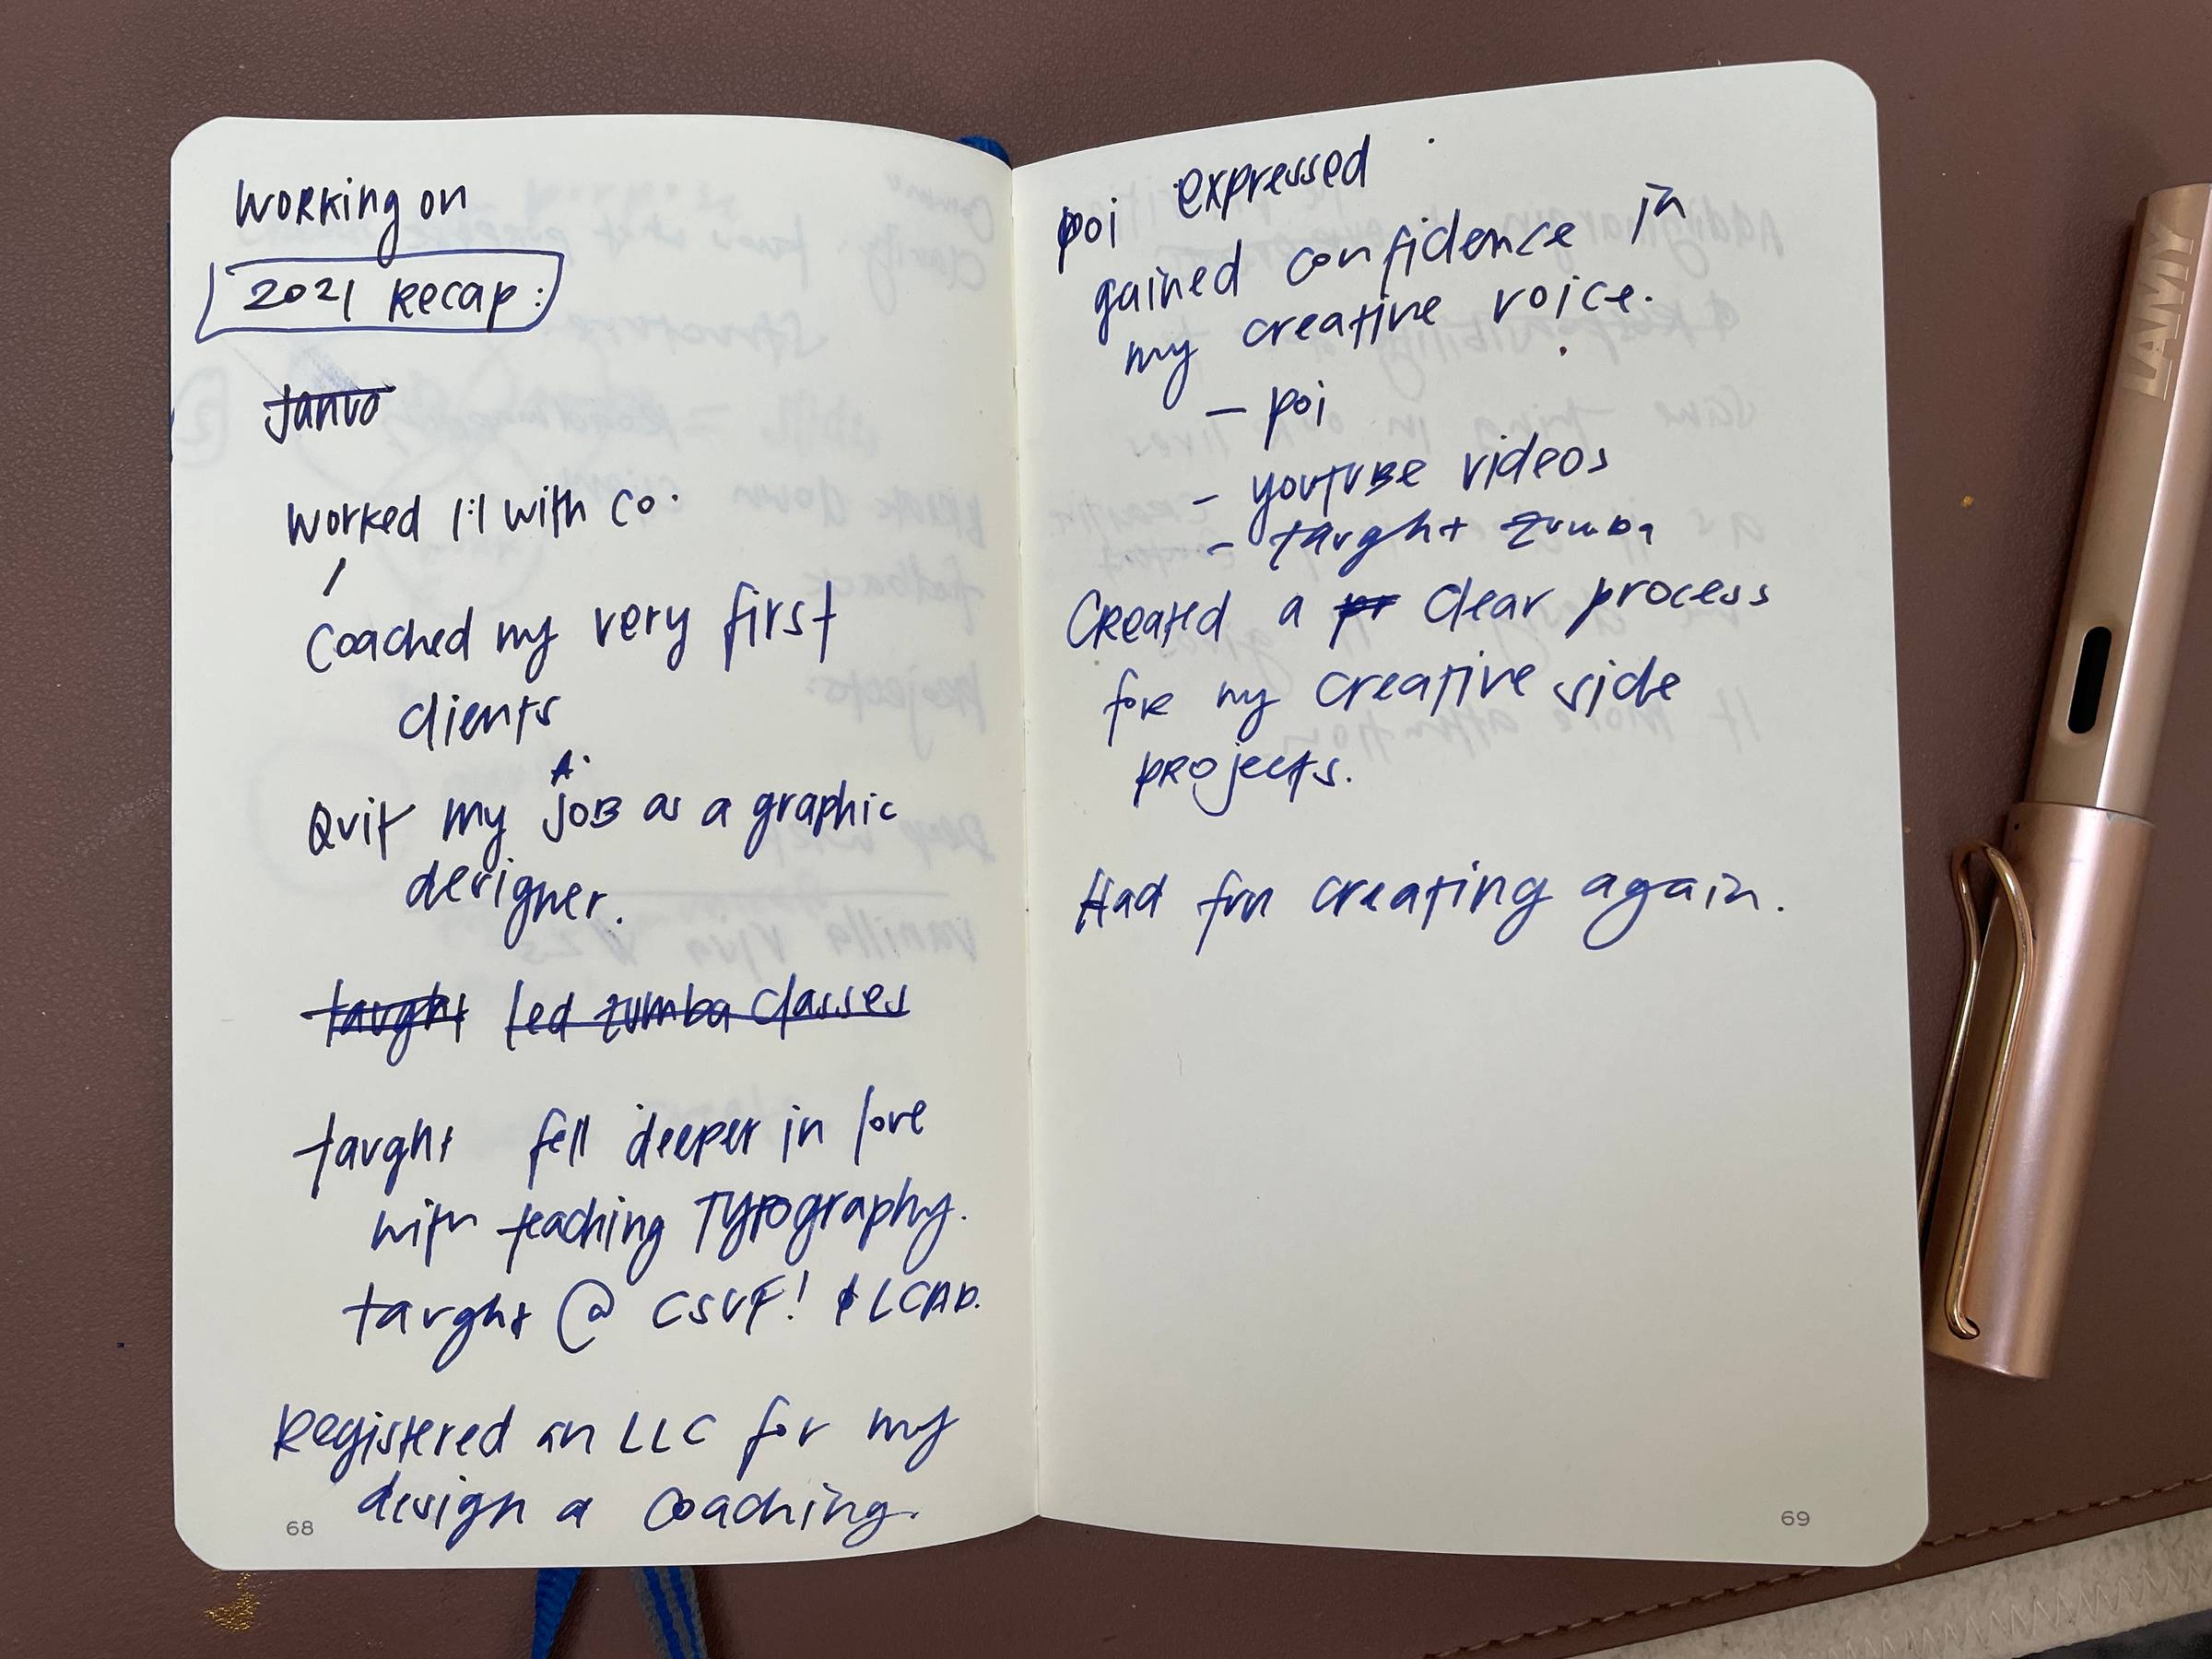 Working on
2021 Recap:
Janua
Worked 1:1 with co.
Coached my very first
clients
A.
Quit my JOB as a graphic
designer.
taught led zumba classes
taught fell deeper in love
with teaching Typography.
taught @ CSUF! & LCAD.
Registered an LLC for my
design & coaching.
68
expressed
poi
gained confidence in
my creative voice.
- poi
- youtube videos
- taught zumba
Created a pr clear process
for my creative side
projects.
Had fun creating again.
69
LAMY